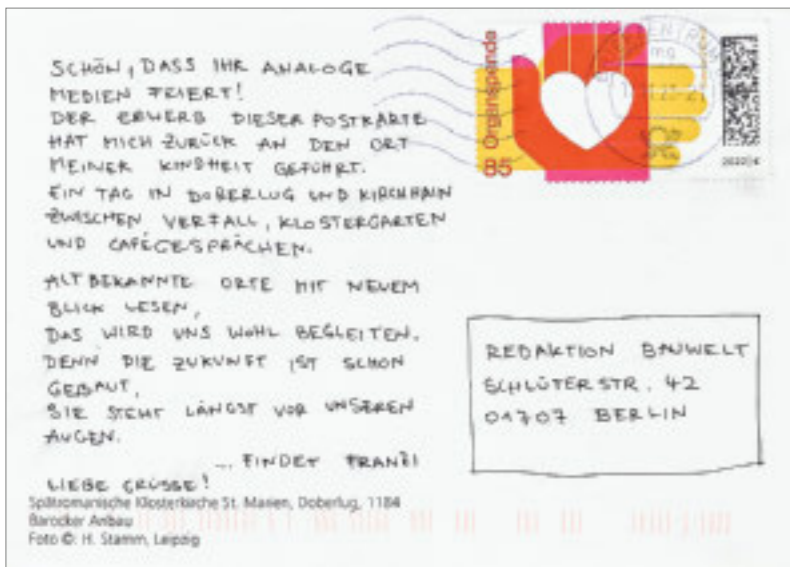 SCHÖN, DASS IHR ANALOGE
MEDIEN FEIERT!
DER ERWERB DIESER POSTKARTE
HAT MICH ZURÜCK AN DEN ORT
MEINER KINDHEIT GEFÜHRT.
EIN TAG IN DOBERLUG UND KIRCHHAIN
ZWISCHEN VERFALL, KLOSTERGARTEN
UND CAFÉGESPRÄCHEN.
ALTBEKANNTE ORTE MIT NEUEM
BLICK LESEN,
DAS WIRD UNS WOHL BEGLEITEN.
DENN DIE ZUKUNFT IST SCHON
GEBAUT,
SIE STEHT LÄNGST VOR UNSEREN
AUGEN.
... FINDET FRANZI
LIEBE GRÜSSE!
Spätromanische Klosterkirche St. Marien, Doberlug, 1184
Barocker Anbau
Foto ©: H. Stamm, Leipzig
Organspende
85
2022
REDAKTION BAUWELT
SCHLÜTERSTR. 42
01707 BERLIN